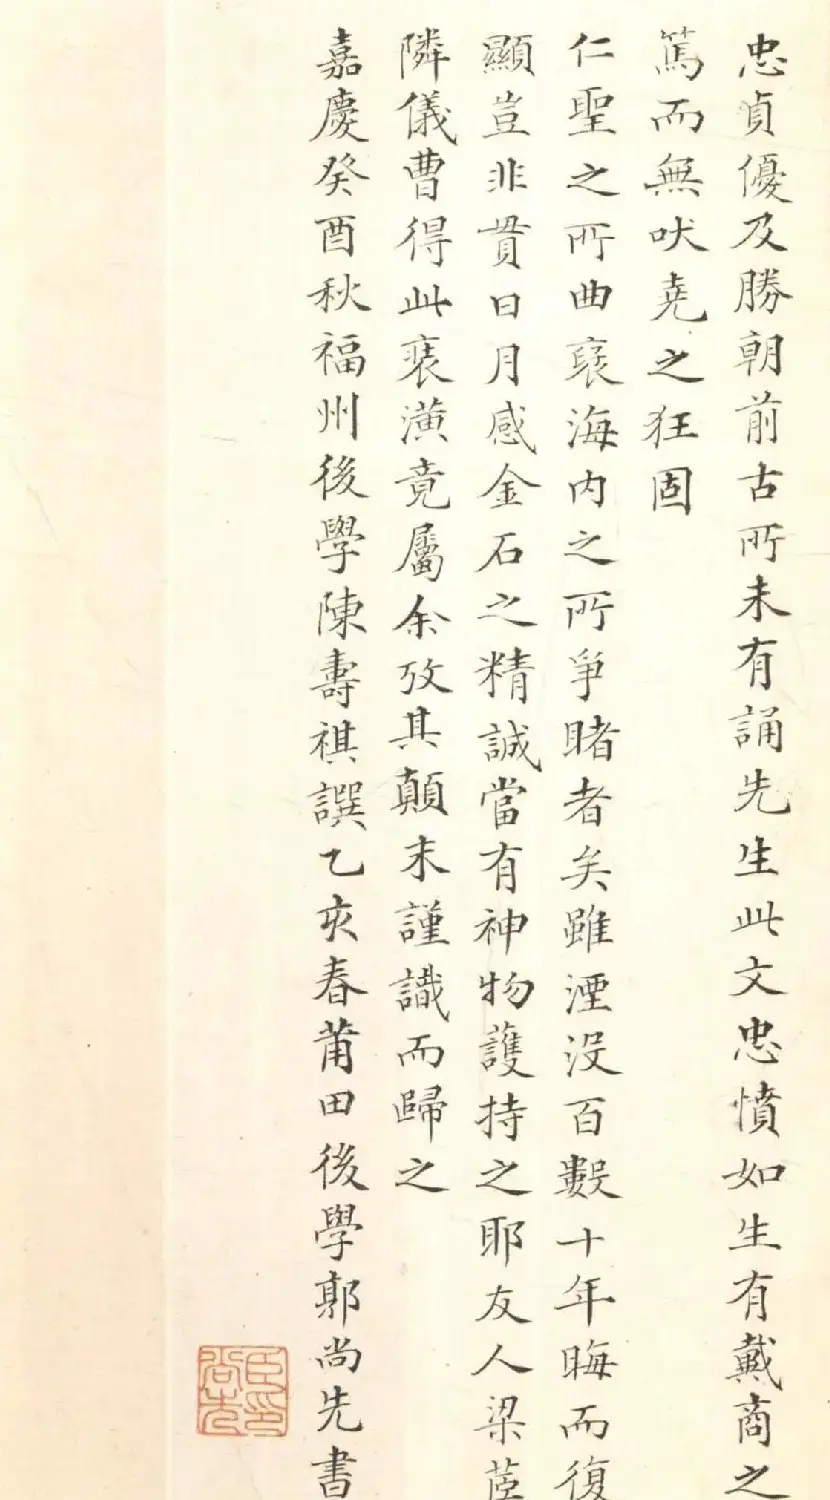 忠貞優及勝朝前古所未有誦先生此文忠憤如生有戴商之
篤而無吠堯之狂固
仁聖之所曲襃海內之所爭睹者矣雖湮没百數十年晦而復
顯豈非貫日月感金石之精誠當有神物護持之耶友人梁茝
隣儀曹得此裘潢竟屬余攷其顛末謹識而歸之
嘉慶癸酉秋福州後學陳壽祺譔乙亥春莆田後學郭尚先書
臣尚先印